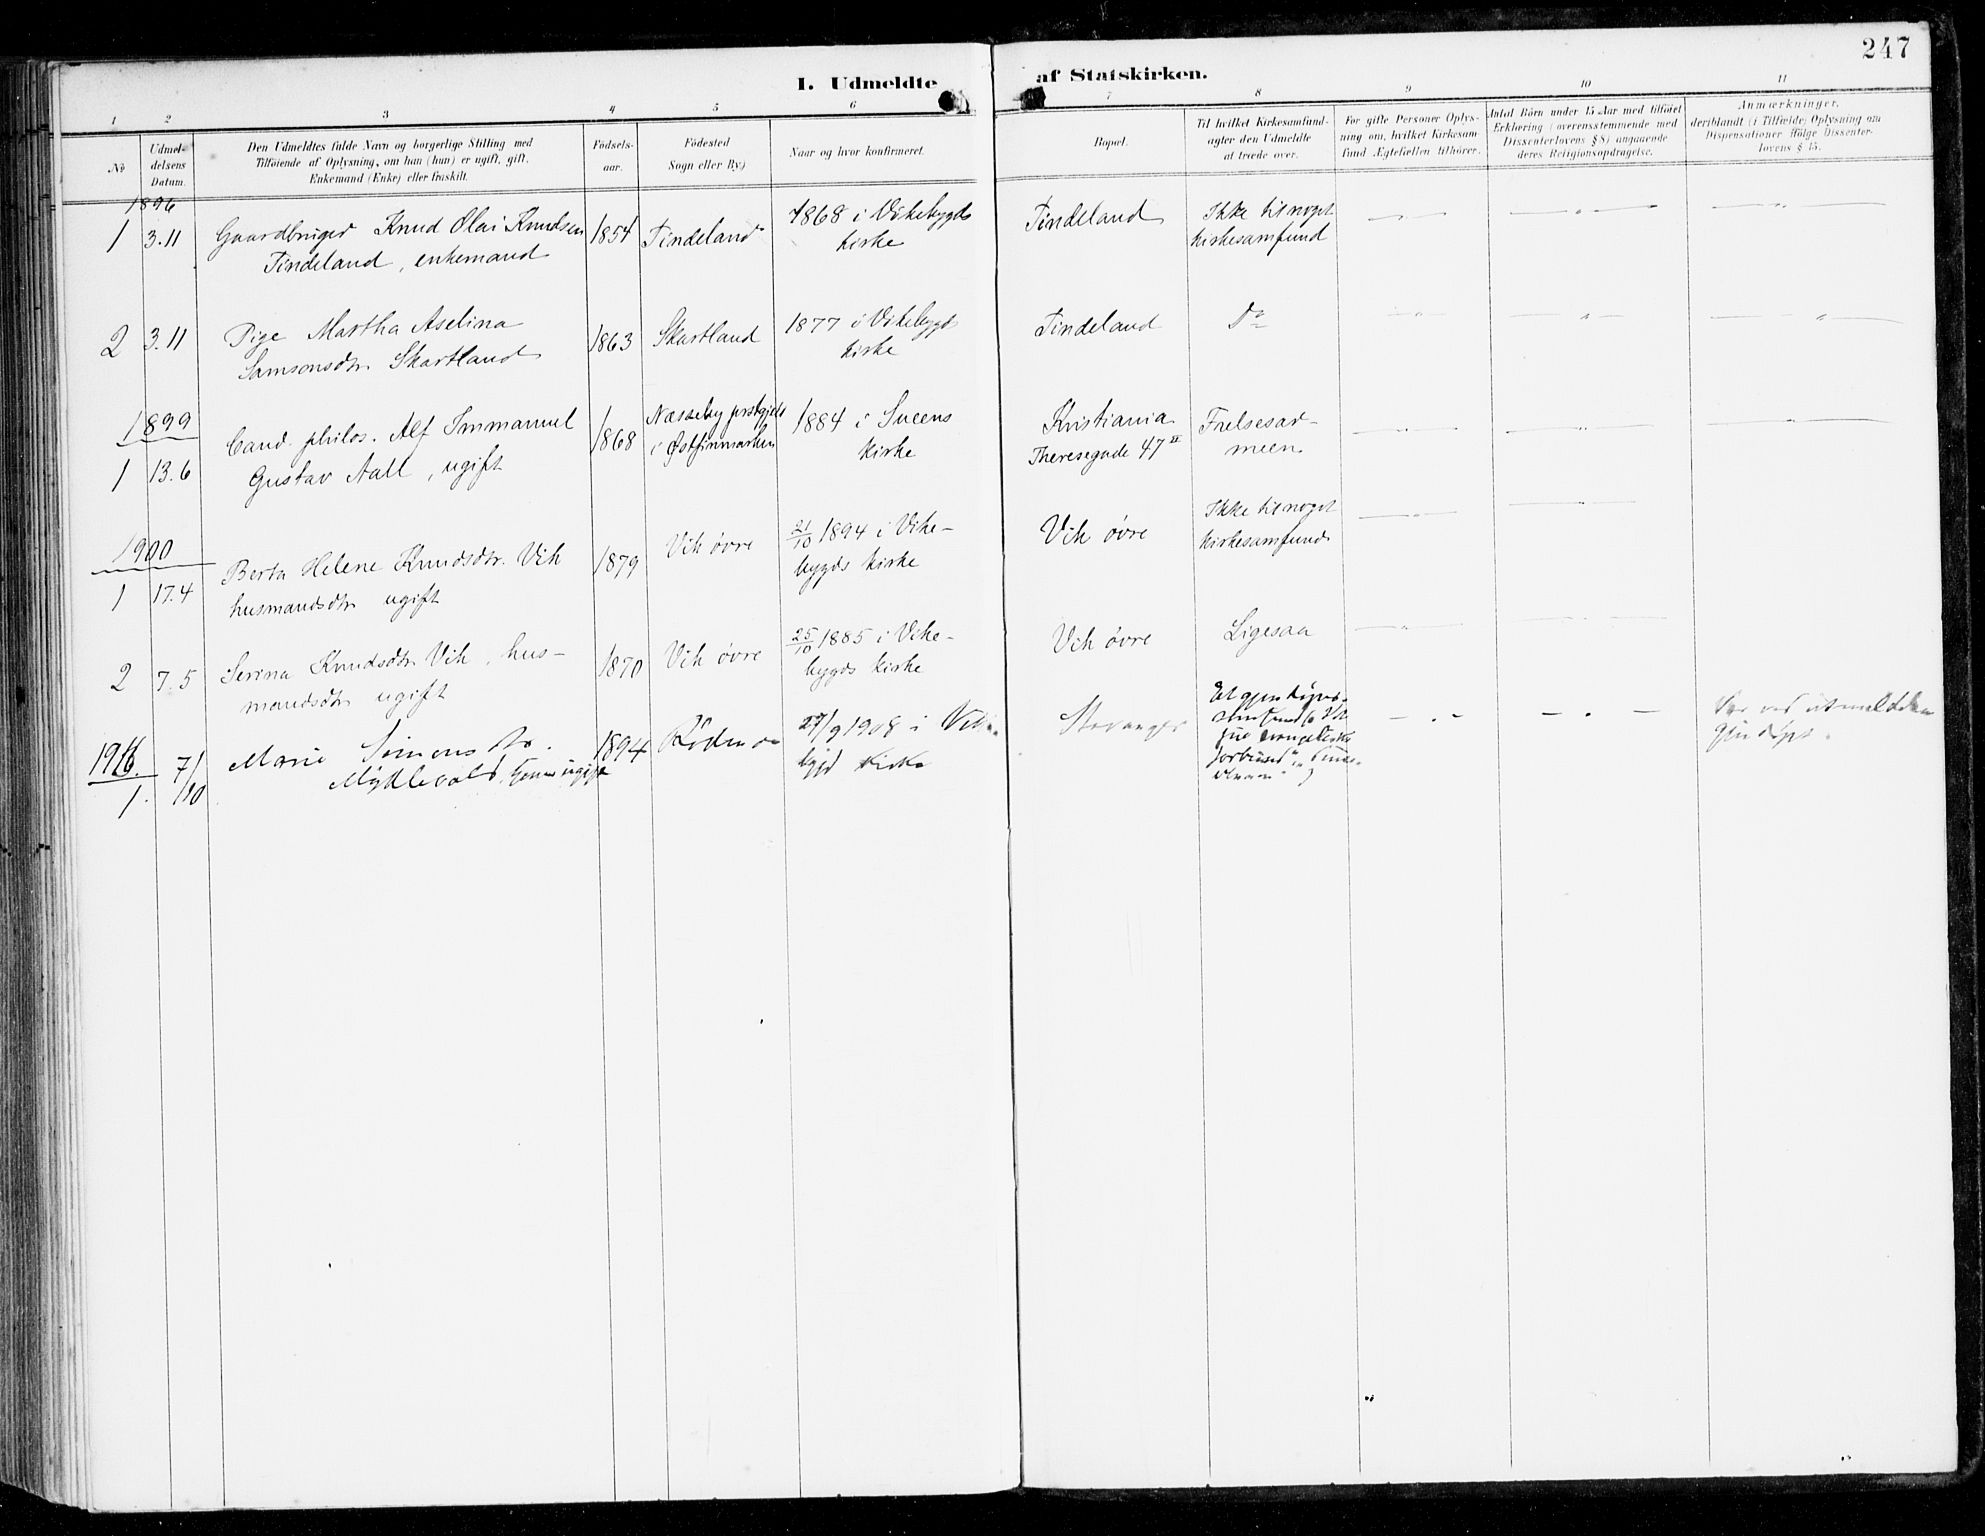 247
I. Udmeldte af Statskirken.
1 2 3 4 5 6 7 8 9 10 11
№
Udmel-
delsens
Datum.
Den Udmeldtes fulde Navn og borgerlige Stilling med
Tilføiende af Oplysning, om han (hun) er ugift, gift,
Enkemand (Enke) eller fraskilt.
Fødsels-
aar.
Fødested
Sogn eller By.)
Naar og hvor konfirmeret.
Bopæl.
Til hvilket Kirkesamfund
agter den Udmeldte
at træde over.
For gifte Personer Oplys-
ning om, hvilket Kirkesam-
fund Ægtefællen tilhører.
Antal Børn under 15 Aar med tilføiet
Erklæring (overensstemmende med
Dissenterlovens § 8) angaaende
deres Religionsopdragelse.
Anmærkninger,
deriblandt (i Tilfælde) Oplysning om
Dispensationer ifølge Dissenter-
lovens § 15.
1896
1 3.11 Gaardbruger Knud Olai Knudsen
Tindeland, enkemand
1854 Tindeland
1868 i Vikebygds
kirke
Tindeland
Ikke til noget
kirkesamfund
2 3.11 Pige Martha Aselina
Samsonsdtr. Skartland
1863 Skartland
1877 i Vikebygds
kirke
Tindeland
Do
1899
1 13.6 Cand. philos. Alf Immanuel
Gustav Aall, ugift
1868
Næsseby prstgjeld
i Østfinmarken
1884 i Sneens
kirke
Kristiania
Theresegade 47 II
Frelsesar-
meen
1900
1 17.4 Berta Helene Knudsdtr. Vik
husmandsdtr ugift
1879 Vik øvre
21/10 1894 i Vike-
bygds kirke
Vik øvre
Ikke til noget
kirkesamfund
2 7.5 Serina Knudsdtr Vik, hus-
mandsdtr ugift
1870 Vik øvre
25/10 1885 i Vike-
bygds kirke
Vik øvre
Ligesaa
1916.
1. 7/10 Marie Simonsdtr.
Myklevold, ugift
1894
27/9 1908 i Vike-
bygd kirke
Stavanger
Et
evangeliske
forbund
Var ved utmeldelsen
gjendøpt.